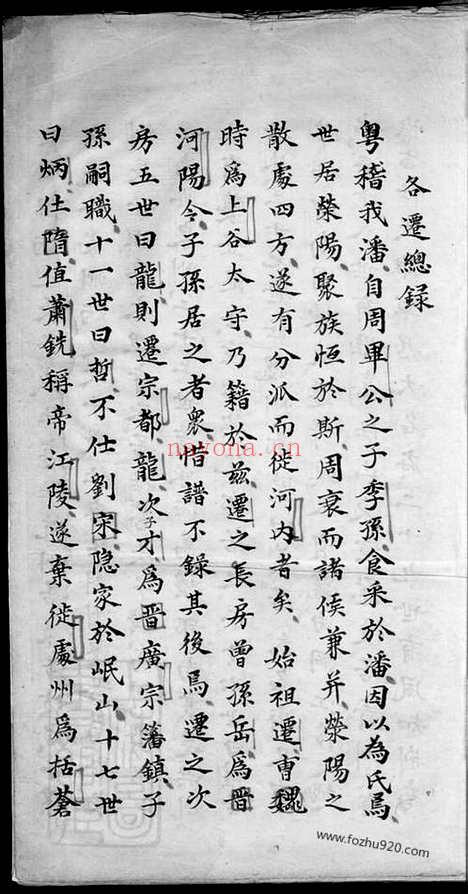 各遷總録
粤稽我潘自周畢公之子季孫食采於潘因以為氏焉
世居榮陽聚族恒於斯周衰而諸侯兼并滎陽之
散處四方遂有分派而徙河内者矣始祖遷曹魏
時爲上谷太守乃籍於兹遷之長房曾孫岳爲晋
河陽令子孫居之者衆惜譜不録其後焉遷之次
房五世曰龍則遷宗都龍次子才爲晋廣宗藩鎮子
孫嗣職十一世曰哲不仕劉宋隐家於岷山十七世
曰炳仕隋值蕭銑稱帝江陵遂棄徙處州爲括蒼
nayona.cn
www.fozhu920.com